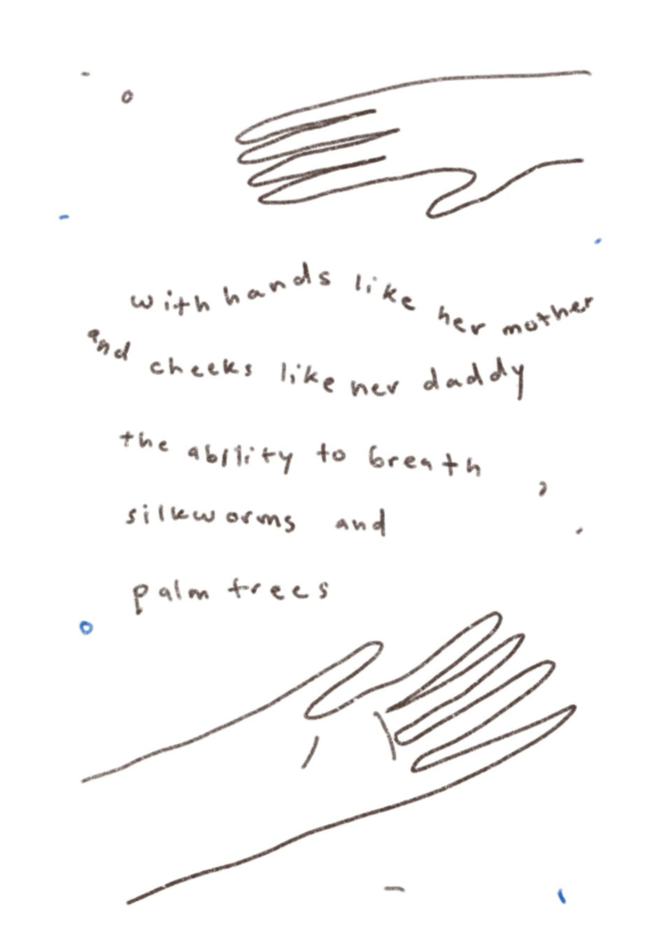 with hands like her mother
and cheeks like her daddy
the ability to breath
silkworms and
palm trees